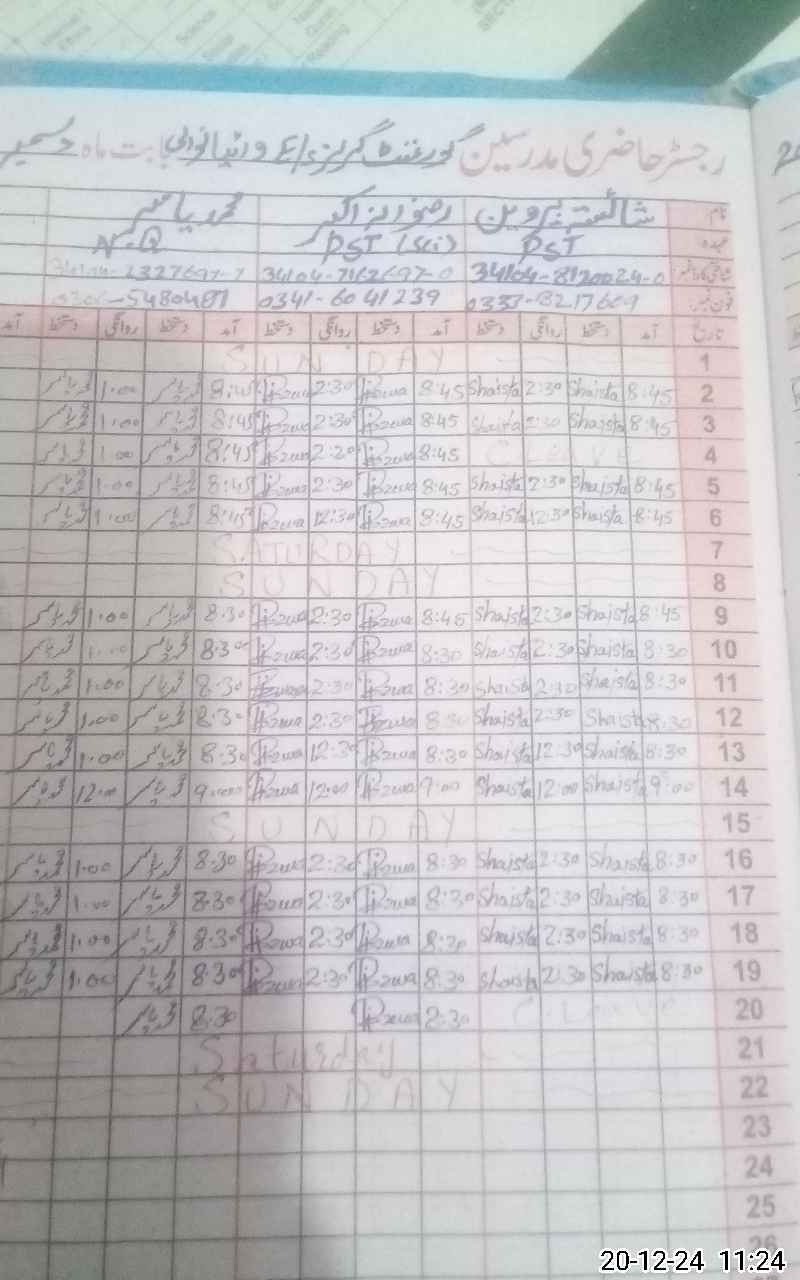 رجسٹر حاضری مدرسین گورنمنٹ گرلز E/S وانیانوالی بابت ماہ دسمبر
نام شائستہ پروین رضوانہ محمد یاسر
عہدہ PST PST (Sci) N.Q
شناختی کارڈ نمبر 34104-8120024-0 34104-7162697-0 34104-2327697-7
فون نمبر 0341-6041239
تاریخ آمد دستخط روانگی دستخط آمد دستخط روانگی دستخط آمد دستخط روانگی دستخط آمد
1 SUNDAY
2 8:45 Shaista 2:30 Shaista 8:45 Rizwa 2:30 Rizwa 8:45 محمد یاسر 1:00 محمد یاسر
3 8:45 Shaista 2:30 Shaista 8:45 Rizwa 2:30 Rizwa 8:45 محمد یاسر 1:00 محمد یاسر
4 C. Leave 8:45 Rizwa 2:20 Rizwa 8:45 محمد یاسر 1:00 محمد یاسر
5 8:45 Shaista 2:30 Shaista 8:45 Rizwa 2:30 Rizwa 8:45 محمد یاسر 1:00 محمد یاسر
6 8:45 Shaista 12:30 Shaista 8:45 Rizwa 12:30 Rizwa 8:45 محمد یاسر 1:00 محمد یاسر
7 SATURDAY
8 SUNDAY
9 8:45 Shaista 2:30 Shaista 8:45 Rizwa 2:30 Rizwa 8:30 محمد یاسر 1:00 محمد یاسر
10 8:30 Shaista 2:30 Shaista 8:30 Rizwa 2:30 Rizwa 8:30 محمد یاسر 1:00 محمد یاسر
11 8:30 Shaista 2:30 Shaista 8:30 Rizwa 2:30 Rizwa 8:30 محمد یاسر 1:00 محمد یاسر
12 8:30 Shaista 2:30 Shaista 8:30 Rizwa 2:30 Rizwa 8:30 محمد یاسر 1:00 محمد یاسر
13 8:30 Shaista 12:30 Shaista 8:30 Rizwa 12:30 Rizwa 8:30 محمد یاسر 1:00 محمد یاسر
14 9:00 Shaista 12:00 Shaista 9:00 Rizwa 12:00 Rizwa 9:00 محمد یاسر 12:00 محمد یاسر
15 SUNDAY
16 8:30 Shaista 2:30 Shaista 8:30 Rizwa 2:30 Rizwa 8:30 محمد یاسر 1:00 محمد یاسر
17 8:30 Shaista 2:30 Shaista 8:30 Rizwa 2:30 Rizwa 8:30 محمد یاسر 1:00 محمد یاسر
18 8:30 Shaista 2:30 Shaista 8:30 Rizwa 2:30 Rizwa 8:30 محمد یاسر 1:00 محمد یاسر
19 8:30 Shaista 2:30 Shaista 8:30 Rizwa 2:30 Rizwa 8:30 محمد یاسر 1:00 محمد یاسر
20 C. Leave 2:30 Rizwa 8:30 محمد یاسر
21 Saturday
22 SUNDAY
23
24
25
26
20-12-24 11:24